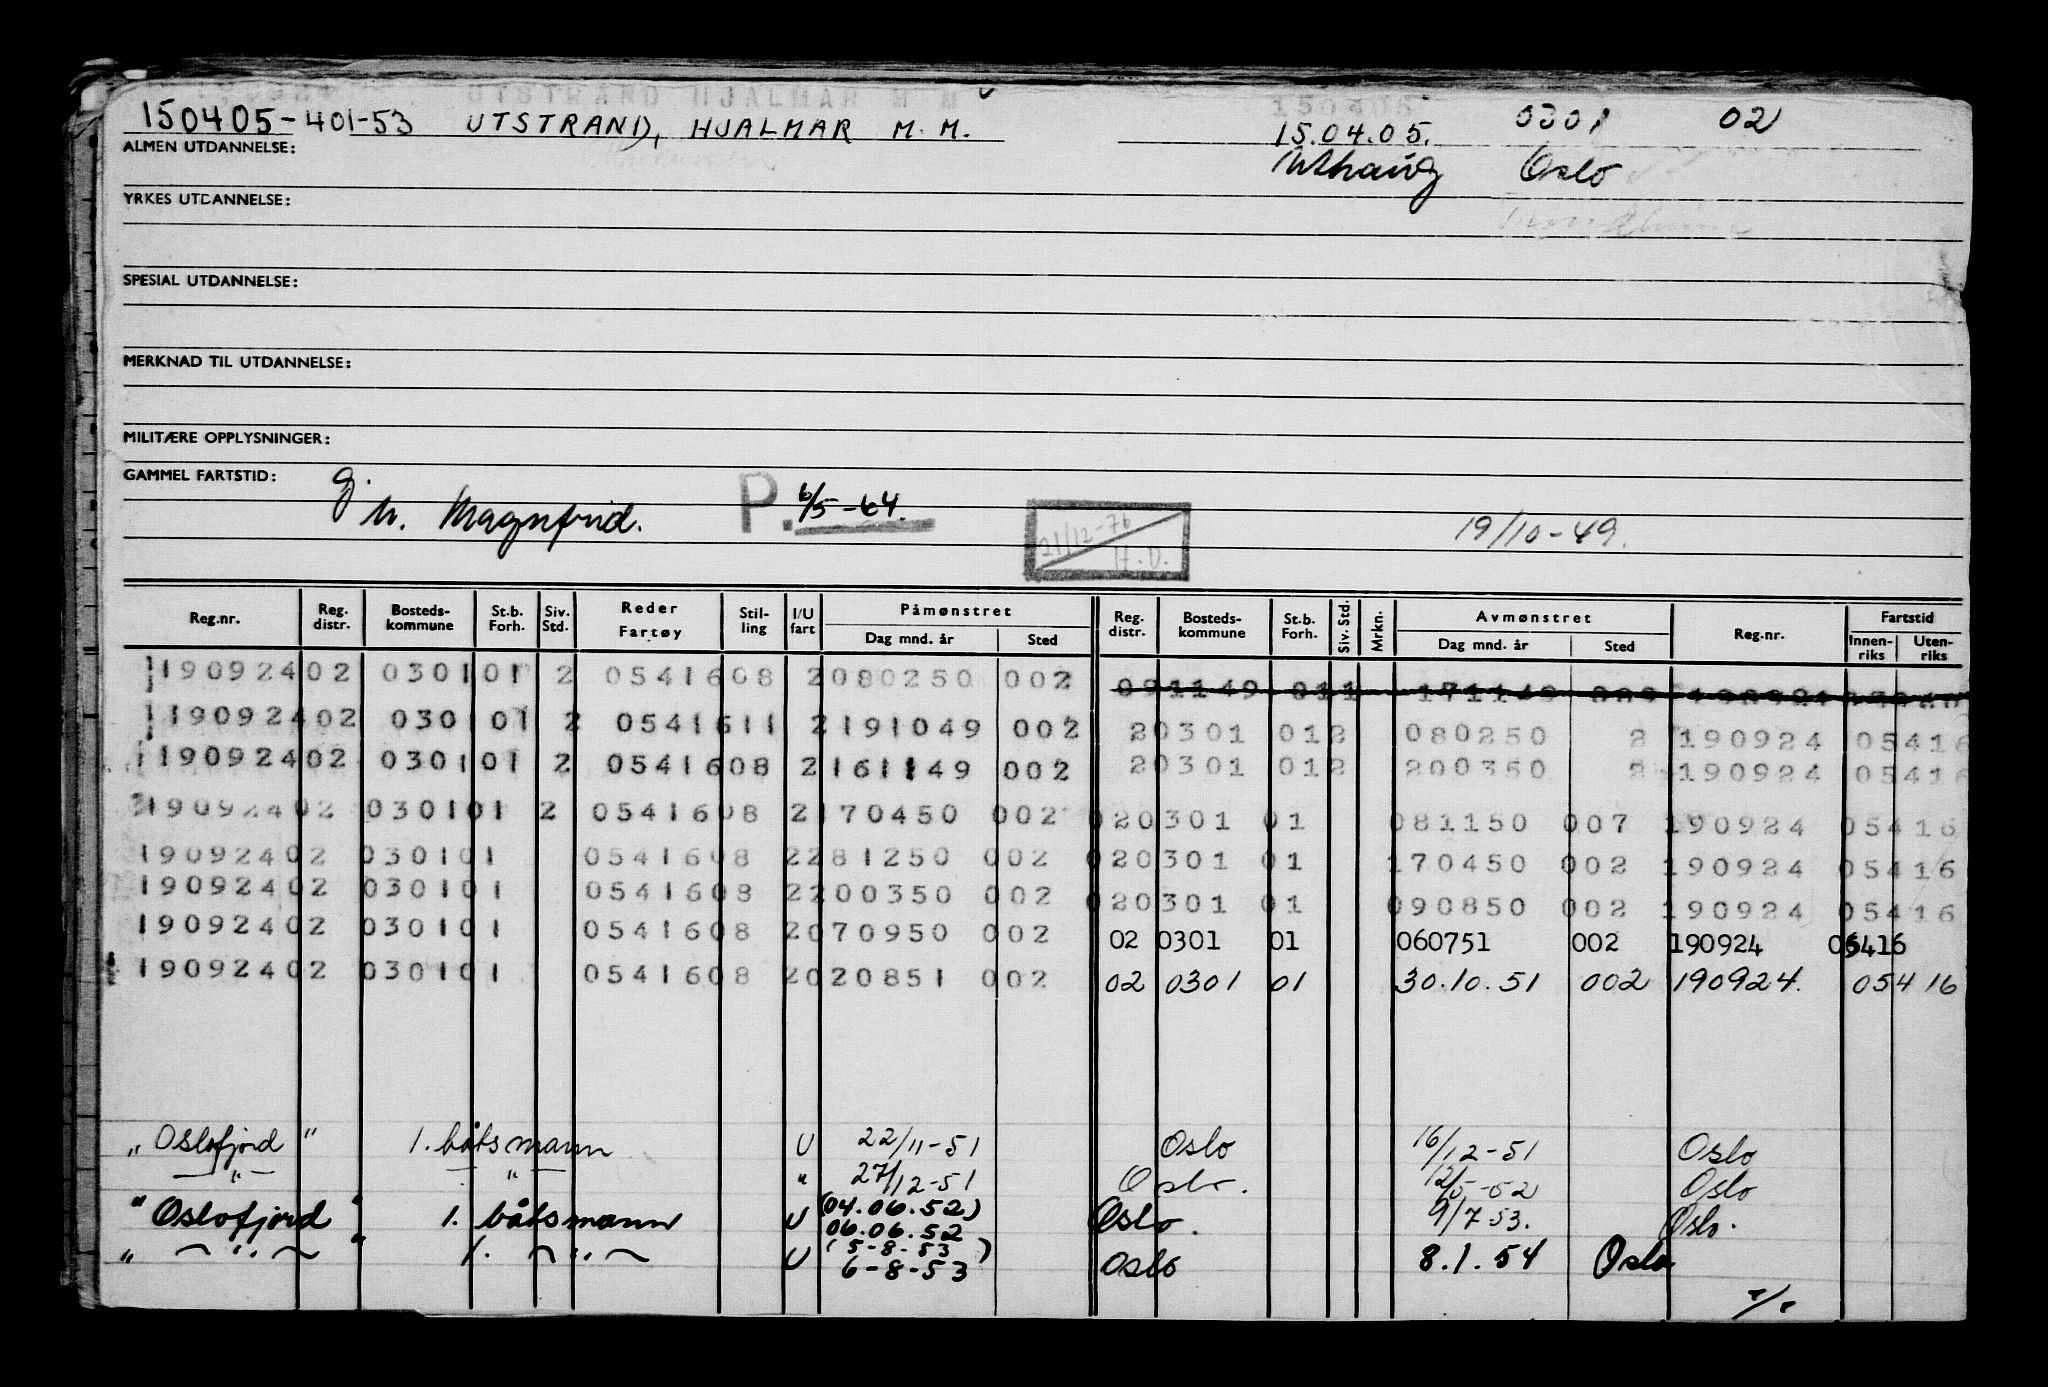 150405-401-53 UTSTRAND, HJALMAR M. M. 15.04.05. 0301 02
ALMEN UTDANNELSE: Uthaug Oslo
YRKES UTDANNELSE:
SPESIAL UTDANNELSE:
MERKNAD TIL UTDANNELSE:
MILITÆRE OPPLYSNINGER:
GAMMEL FARTSTID:
P. 6/5-64.
21/12-76 H.D.
19/10-49.
Reg.nr. Reg. distr. Bosteds-kommune St.b. Forh. Siv. Std. Reder Fartøy Stil-ling I/U fart Påmønstret Dag mnd. år Sted Reg. distr. Bosteds-kommune St.b. Forh. Siv. Std. Mrkn. Avmønstret Dag mnd. år Sted Reg.nr. Fartstid Innen-riks Uten-riks
190924 02 0301 01 2 05416 08 2 080250 002 091149 011 171149
190924 02 0301 01 2 05416 11 2 191049 002 2 0301 01 2 080250 2 190924 05416
190924 02 0301 01 2 05416 08 2 161149 002 2 0301 01 2 200350 2 190924 05416
190924 02 0301 01 2 05416 08 2 170450 002 02 0301 01 081150 007 190924 05416
190924 02 0301 01 05416 08 2 281250 002 02 0301 01 170450 002 190924 05416
190924 02 0301 01 05416 08 2 200350 002 02 0301 01 090850 002 190924 05416
190924 02 0301 01 05416 08 2 070950 002 02 0301 01 060751 002 190924 05416
190924 02 0301 01 05416 08 2 020851 002 02 0301 01 30.10.51 002 190924. 05416
"Oslofjord" 1. båtsmann U 22/11-51 Oslo 16/12-51 Oslo
— " — — " — " 27/12-51 Oslo. 12/5-52 Oslo
"Oslofjord" 1. båtsmann U (04.06.52) 06.06.52 Oslo. 9/7 53. Oslo.
" — " — " 1. — " — U (5-8-53) 6-8-53 Oslo 8.1.54 Oslo